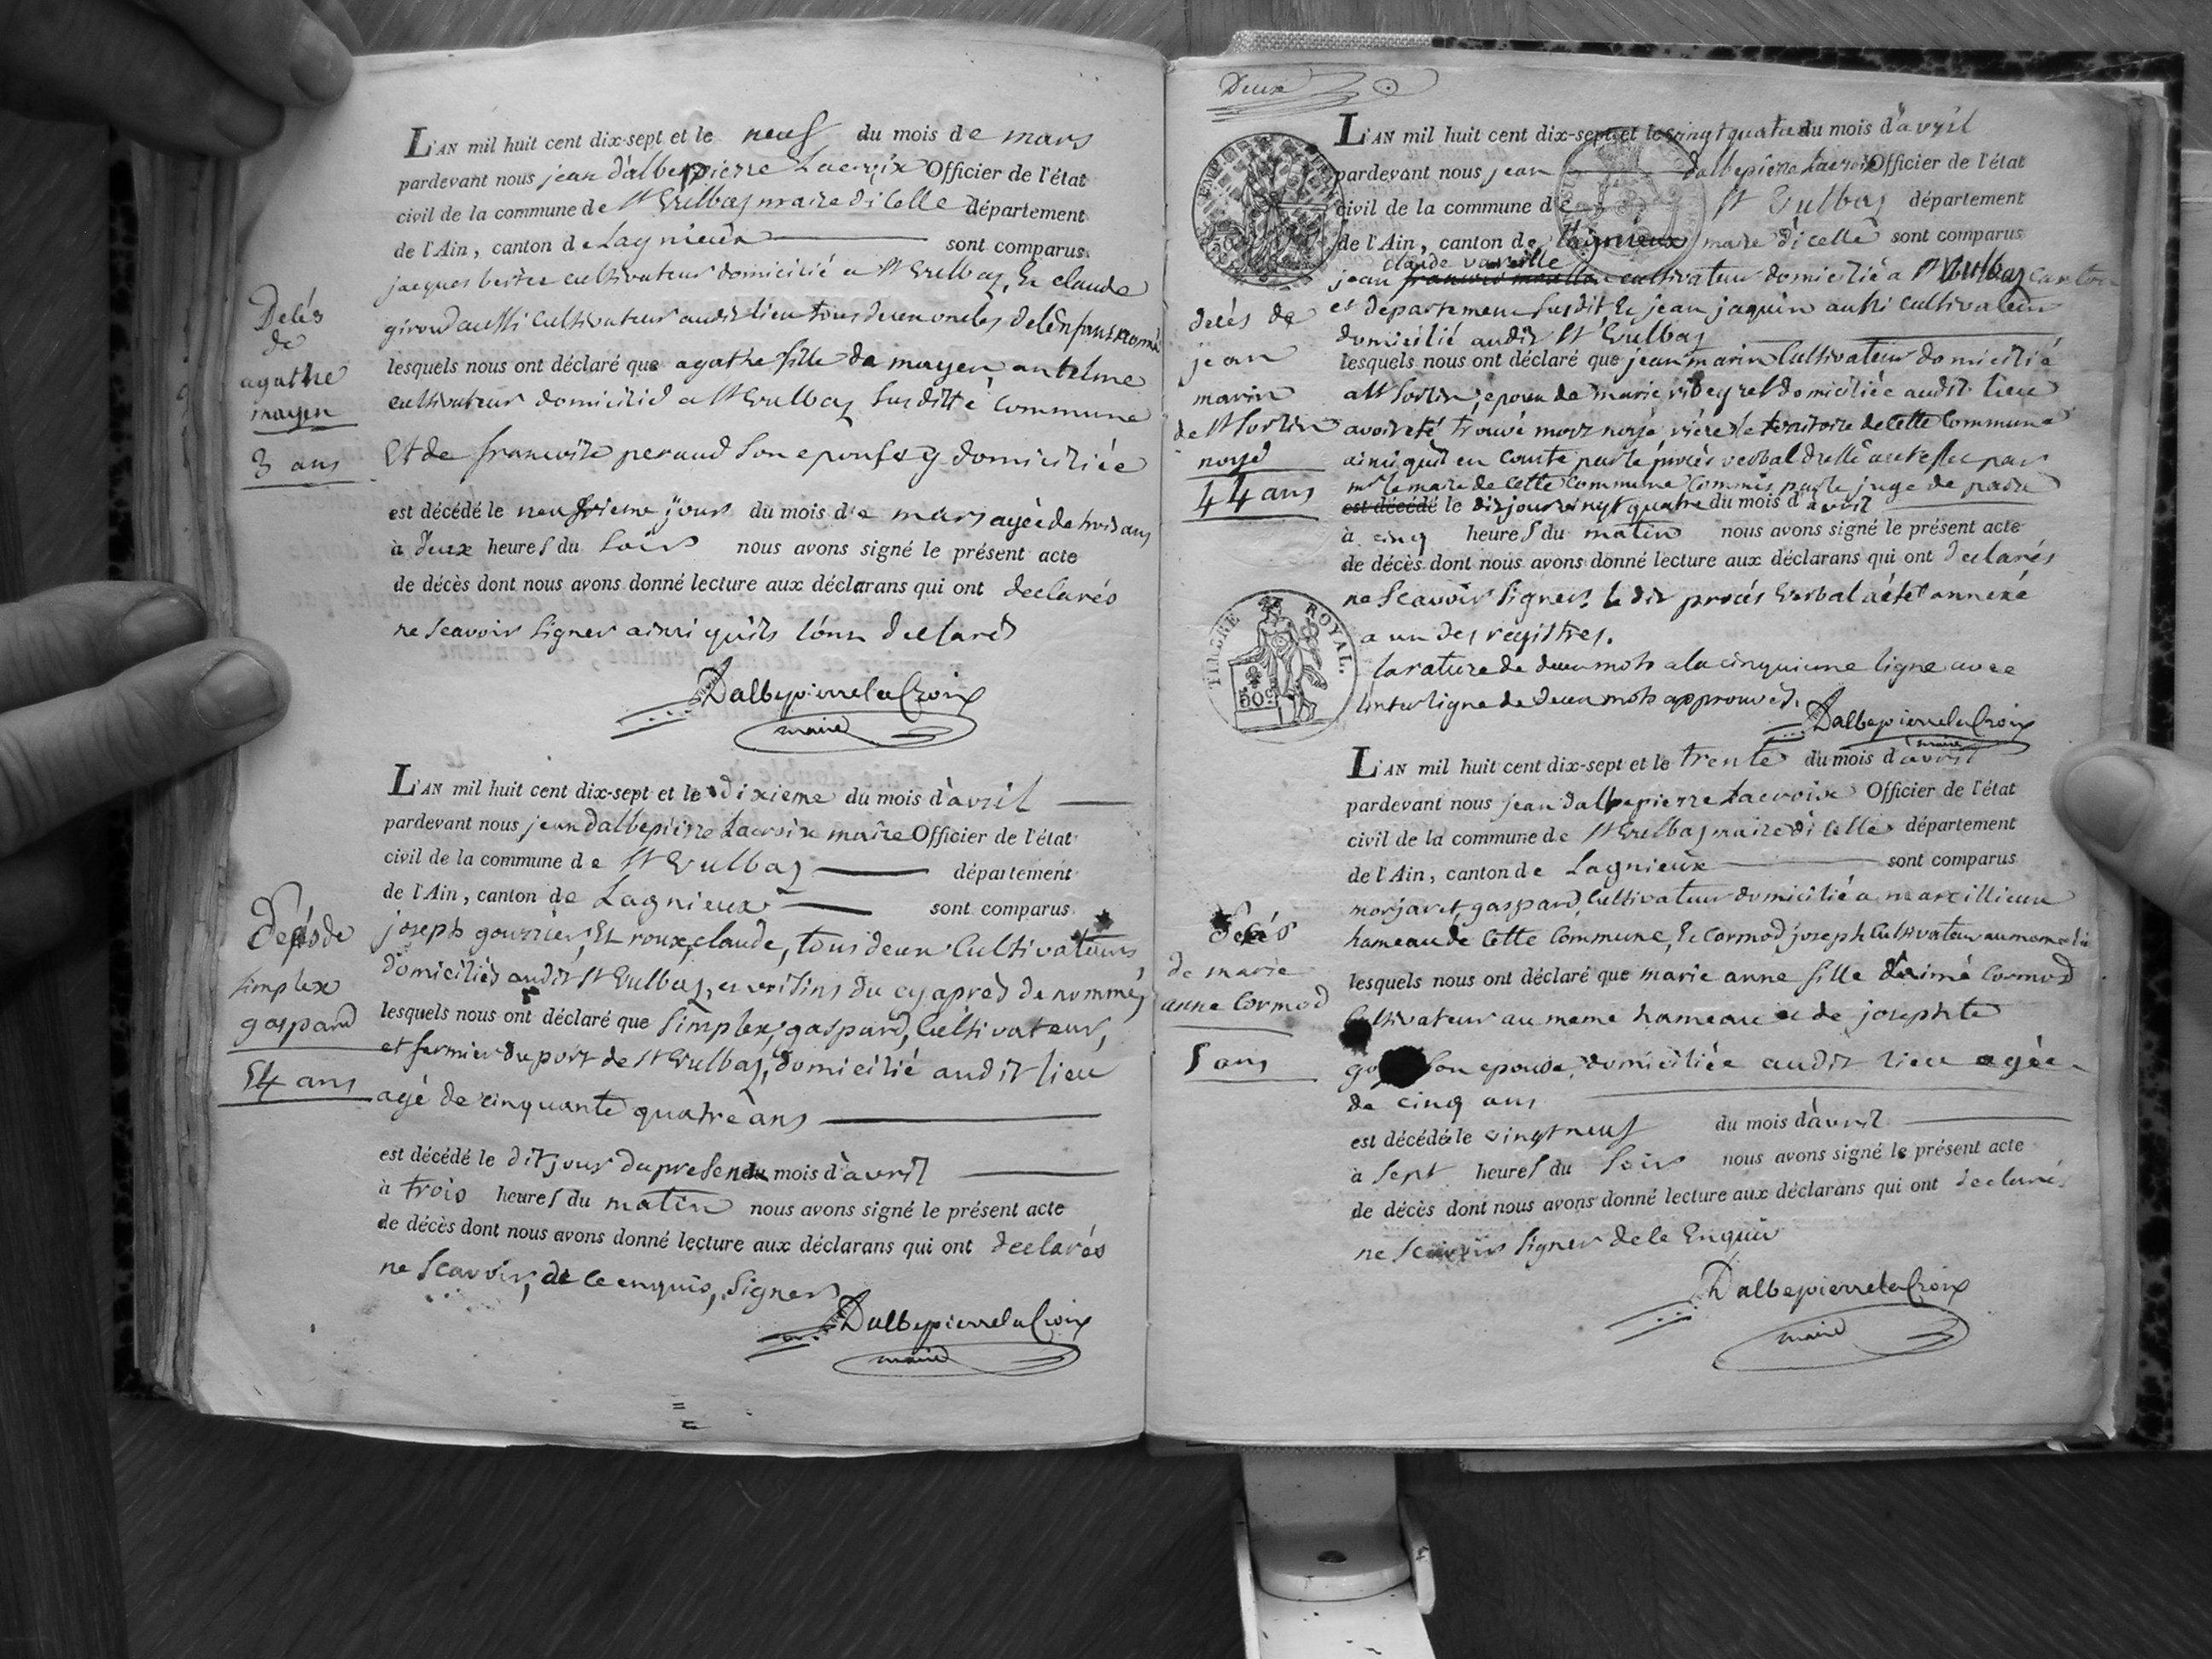 L'AN mil huit cent dix-sept et le neuf du mois de mars
pardevant nous jean dalbepierre Lacroix Officier de l'état
civil de la commune de St Vulbas maire dicelle département
de l'Ain, canton de Lagnieux sont comparus
jacques cultivateur domicilié a St Vulbas, Et claude
giroud aussi cultivateur audit lieu tous deux oncles de lenfant
lesquels nous ont déclaré que agathe fille de mayen antelme
cultivateur domicilié a St Vulbas susditte commune
Et de francoise peraud son epouse y domiciliée
est décédé le neufvieme jour du mois de mars agée de trois ans
à deux heures du soir nous avons signé le présent acte
de décès dont nous avons donné lecture aux déclarans qui ont declarés
ne scavoir signer ainsi quils lont declarés
DalbepierrelaCroix
maire
Delés
de
agathe
mayen
3 ans
L'AN mil huit cent dix-sept et le dixieme du mois d'avril
pardevant nous jean dalbepierre Lacroix maire Officier de l'état
civil de la commune de St Vulbas département
de l'Ain, canton de Lagnieux sont comparus
joseph gourrier, Et roux, claude, tous deux Cultivateurs,
domiciliés audit St Vulbas, et voisins du cy apres denommés,
lesquels nous ont déclaré que simplex, gaspard, Cultivateur,
et fermier du port de St Vulbas, domicilié audit lieu
agé de cinquante quatre ans
est décédé le dit jour du present mois d'avril
à trois heures du matin nous avons signé le présent acte
de décès dont nous avons donné lecture aux déclarans qui ont declarés
ne scavoir, de ce enquis, signer
DalbepierrelaCroix
maire
Delés de
simplex
gaspard
54 ans
Deux
L'AN mil huit cent dix-sept et le vingt quatre du mois d'avril
pardevant nous jean dalbepierre Lacroix Officier de l'état
civil de la commune de St Vulbas département
de l'Ain, canton de Lagnieux maire dicelle sont comparus
claude
jean cultivateur domicilié a St Vulbas canton
et departement susdit, Et jean jaquin aussi cultivateur
domicilié audit St Vulbas
lesquels nous ont déclaré que jean marin Cultivateur domicilié
a St Sorlin, epoux de marie domiciliée audit lieu
avoir eté trouvé mort noyé rière le territoire de cette Commune
ainsi quil en conste par le procès verbal dressé par
mr le maire de cette Commune Commis par le juge de paix
est décédé le dit jour vingt quatre du mois d'avril
à cinq heures du matin nous avons signé le présent acte
de décès dont nous avons donné lecture aux déclarans qui ont declarés
ne scavoir signer. le dit procés verbal a été annexé
a un des registres.
la rature de deux mots a la cinquieme ligne avec
linterligne de deux mots approuvés.
DalbepierrelaCroix
maire
decés de
jean
marin
de St Sorlin
noyé
44 ans
TIMBRE ROYAL.
50c
L'AN mil huit cent dix-sept et le trente du mois d'avril
pardevant nous jean dalbepierre Lacroix Officier de l'état
civil de la commune de St Vulbas maire dicelle département
de l'Ain, canton de Lagnieux sont comparus
morjaret, gaspard, Cultivateur domicilié a marcillieux
hameau de cette Commune, Et Cormod joseph Cultivateur au meme lieu
lesquels nous ont déclaré que marie anne fille d'aimé Cormod
Cultivateur au meme hameau et de josephte
son epouse, domiciliée audit lieu agée
de cinq ans
est décédée le vingt neuf du mois d'avril
à sept heures du soir nous avons signé le présent acte
de décès dont nous avons donné lecture aux déclarans qui ont declarés
ne scavoir signer de ce Enquis
DalbepierrelaCroix
maire
decés
de marie
anne Cormod
5 ans